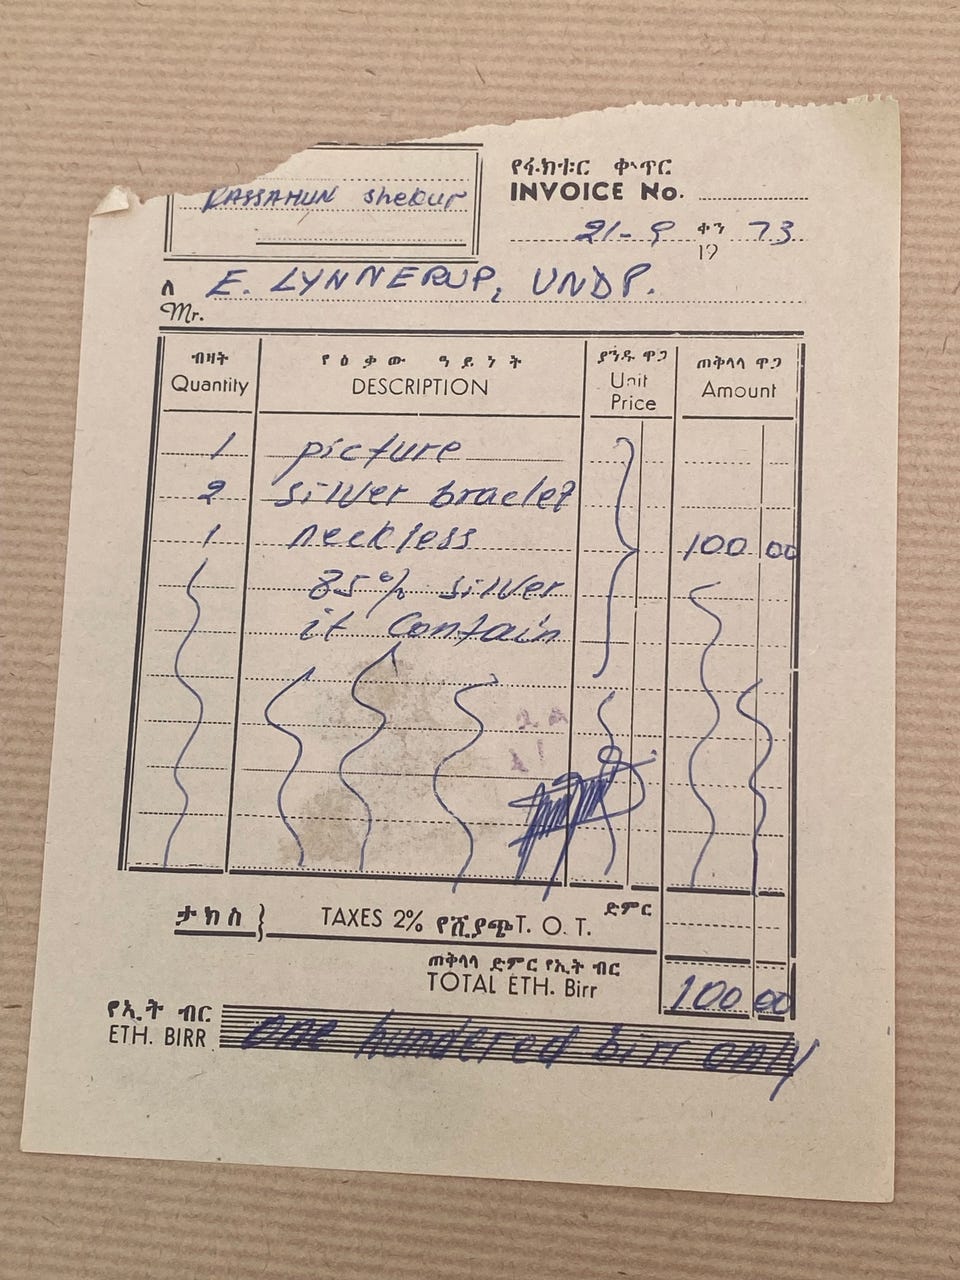 KASSAHUN Shekur
የፋክቱር ቍጥር
INVOICE No.
21-9 ቀን 1973
ለ E. LYNNERUP, UNDP.
Mr.
ብዛት የዕቃው ዓይነት ያንዱ ዋጋ ጠቅላላ ዋጋ
Quantity DESCRIPTION Unit Price Amount
1 picture
2 silver braclet
1 neckless 100 00
85% silver
it contain
ታክስ } TAXES 2% የሺያጭ T. O. T. ድምር
ጠቅላላ ድምር የኢት ብር
TOTAL ETH. Birr 100 00
የኢት ብር
ETH. BIRR one hundered birr only